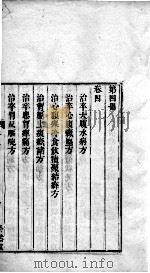 第四冊
卷四
治卒大腹水病方
治卒心腹癥堅方
治心腹寒冷食飲積聚結癖方
治胸膈上痰癊諸方
治卒患胸痹痛方
治卒胃反嘔啘方